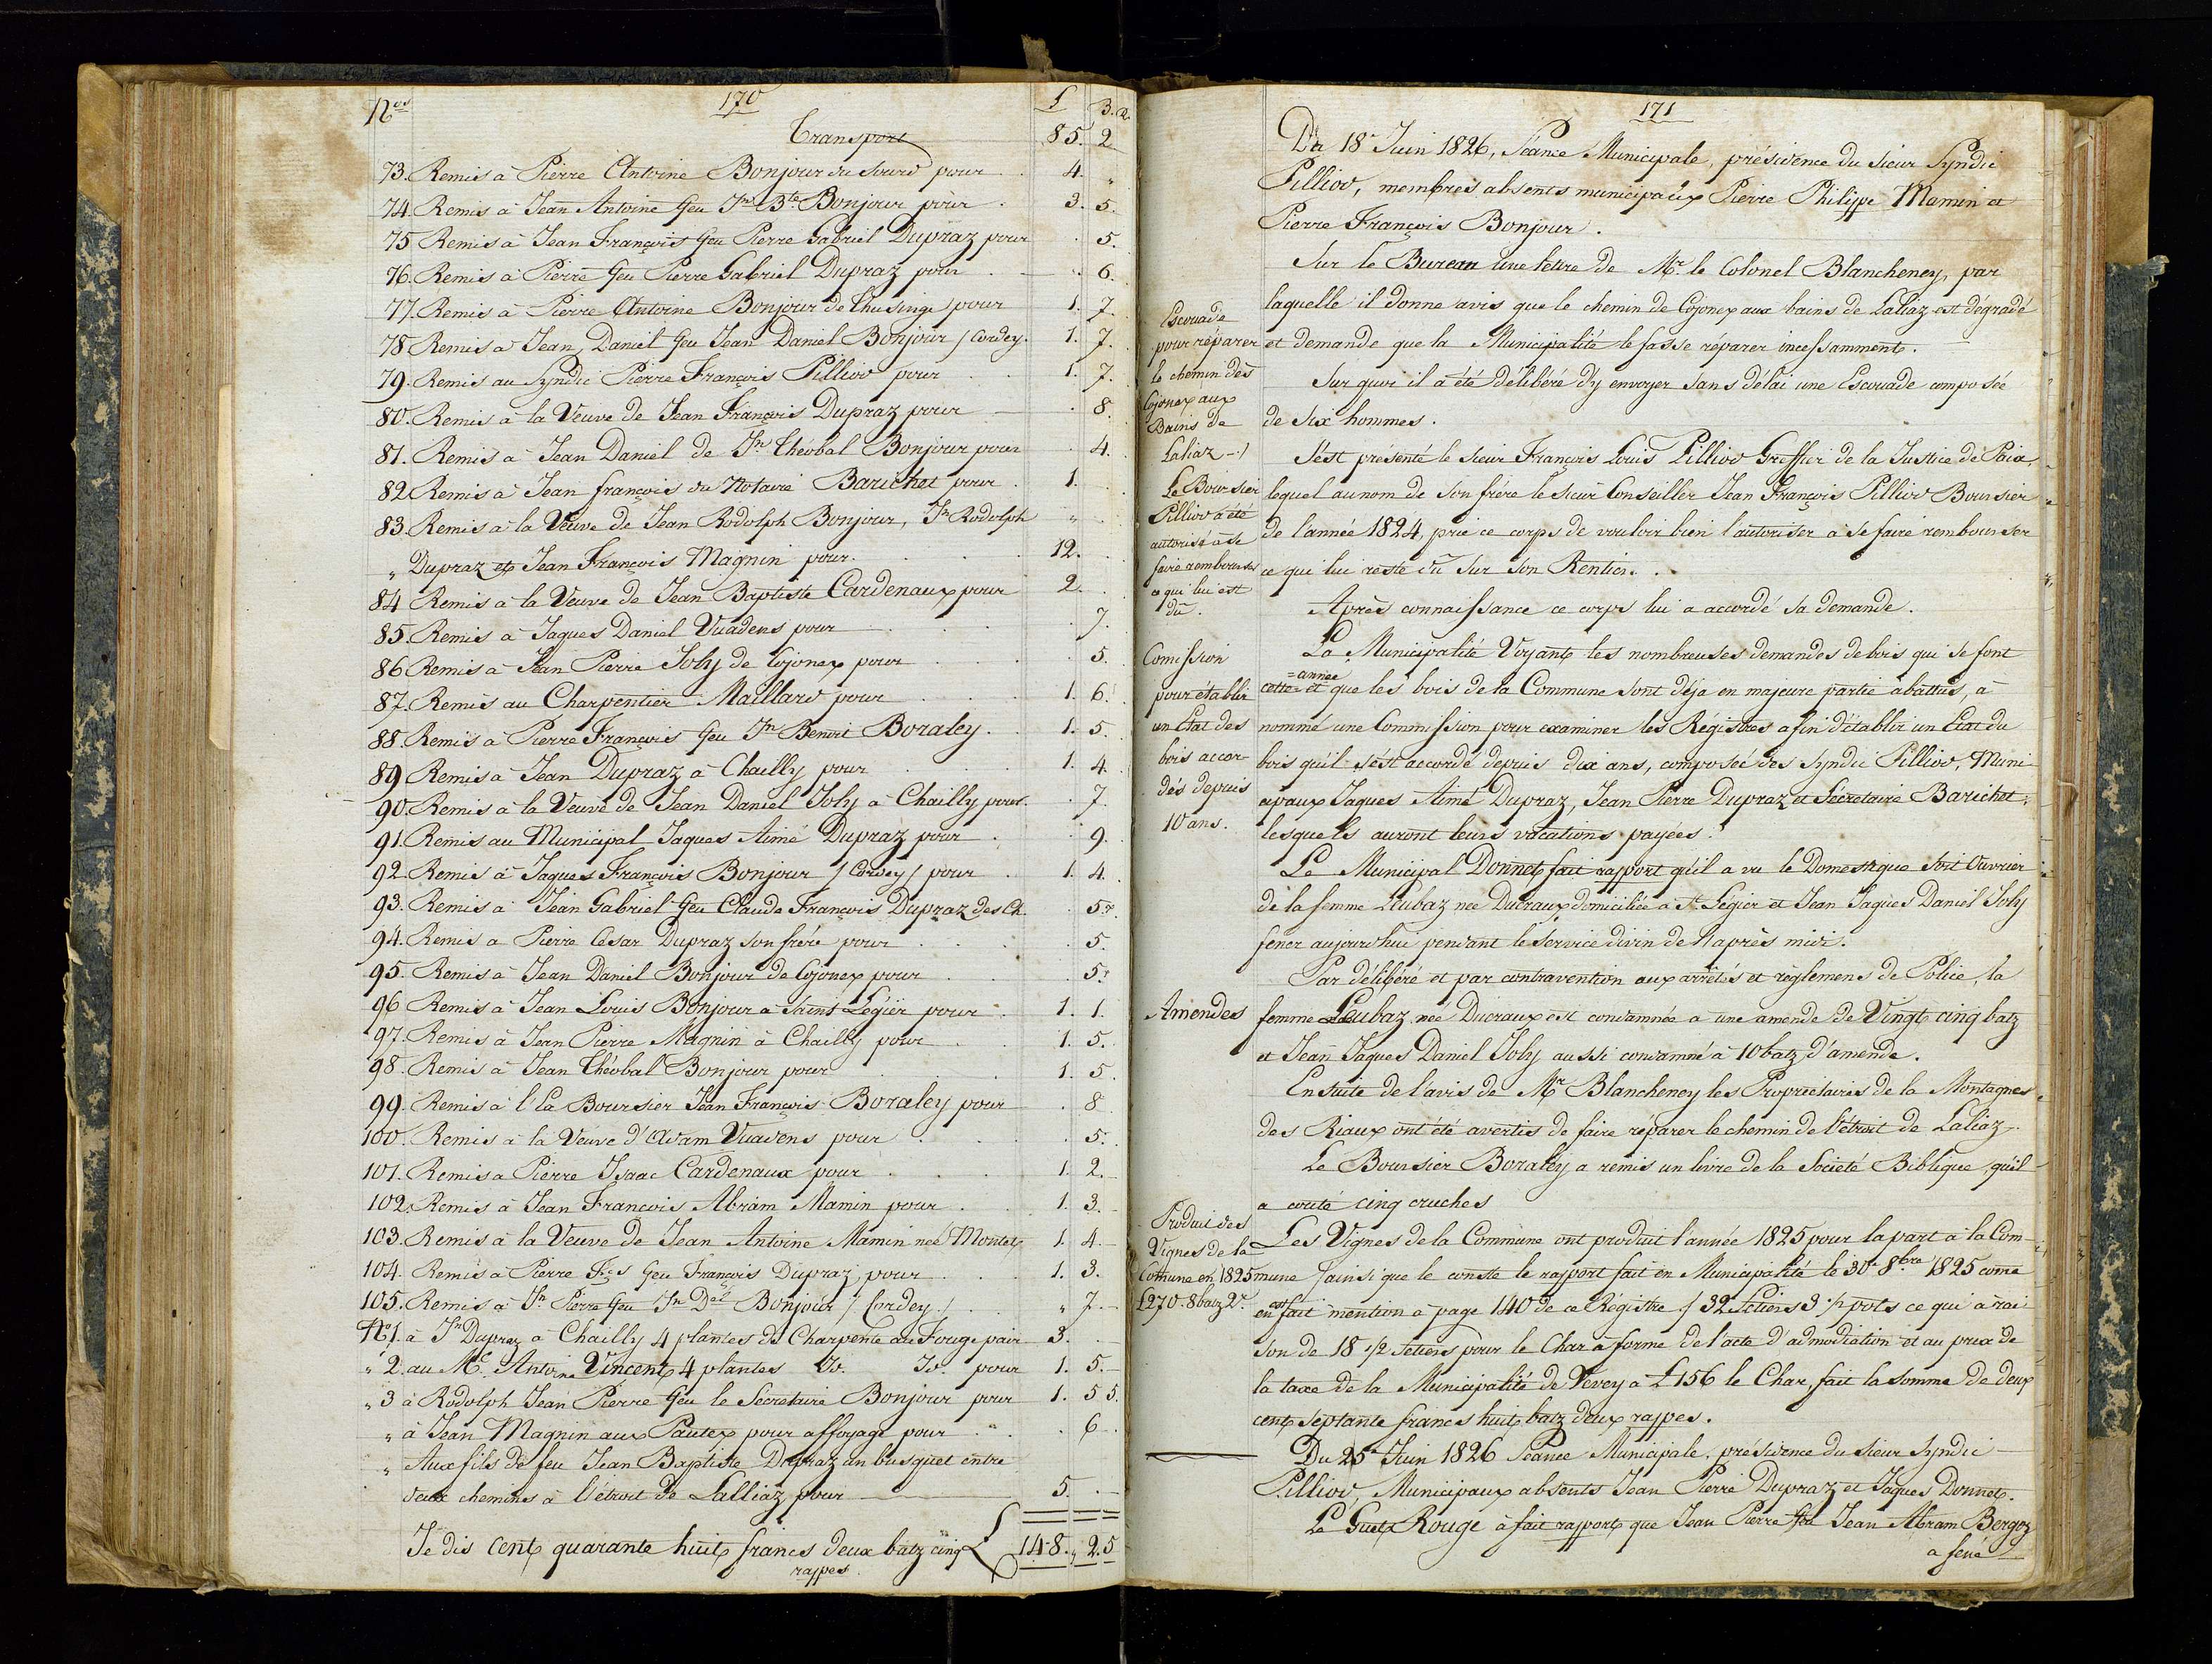 170
Nos £ B. R.
Transport 85. 2
73. Remis à Pierre Antoine Bonjour du Sourd pour 4. "
74. Remis à Jean Antoine feu Jn Bte Bonjour pour 3. 5.
75 Remis à Jean François feu Pierre Gabriel Dupraz pour 5.
76. Remis à Pierre feu Pierre Gabriel Dupraz pour 6.
77. Remis à Pierre Antoine Bonjour de Chusinge pour 1. 7.
78 Remis à Jean Daniel feu Jean Daniel Bonjour / Cordey. 1. 7.
79. Remis au Syndic Pierre François Pilliod pour 1. 7.
80. Remis à la Veuve de Jean François Dupraz pour 8.
81. Remis à Jean Daniel de Jn Théobal Bonjour pour 4.
82 Remis à Jean françois du Notaire Barichet pour 1.
83. Remis à la Veuve de Jean Rodolph Bonjour, Jn Rodolph "
" Dupraz et Jean François Magnin pour. 12.
84 Remis à la Veuve de Jean Baptiste Cardenaux pour 2.
85. Remis à Jaques Daniel Vuadens pour 7.
86 Remis à Jean Pierre Joly de Cojonex pour 5.
87. Remis au Charpentier Maillard pour 1. 6.
88. Remis à Pierre François feu Jn Benoit Boraley. 1. 5.
89 Remis à Jean Dupraz à Chailly pour 1. 4.
90. Remis à la Veuve de Jean Daniel Joly à Chailly pour. 7.
91. Remis au Municipal Jaques Aimé Dupraz pour 9.
92. Remis à Jaques François Bonjour / Cordey / pour 1. 4.
93. Remis à Jean Gabriel feu Claude François Dupraz des Ch. 5.
94. Remis a Pierre César Dupraz son frére pour 5.
95. Remis à Jean Daniel Bonjour de Cojonex pour 5.
96 Remis à Jean Louis Bonjour à Saint Légier pour 1. 1.
97. Remis à Jean Pierre Magnin à Chailly pour 1. 5.
98. Remis à Jean Théobal Bonjour pour 1. 5.
99. Remis à l'La Boursier Jean François Boraley pour 8
100. Remis à la Veuve d'Adam Vuadens pour 5.
101. Remis a Pierre Isaac Cardenaux pour 1. 2.
102. Remis à Jean François Abram Mamin pour 1. 3.
103. Remis à la Veuve de Jean Antoine Mamin neé Montet 1. 4.
104. Remis à Pierre Fçs feu François Dupraz pour 1. 3.
105. Remis à Jn Pierre feu Jn Del Bonjour / Cordey / " 7.
No 1. à Jn Dupraz à Chailly 4 plantes de Charpente au Fouge pair 3.
" 2. au Me. Antoine Vincent 4 plantes Do. Do. pour 1. 5.
" 3 à Rodolph Jean Pierre feu le Secretaire Bonjour pour 1. 5 5.
" à Jean Magnin aux Pautex pour affoyage pour 6
" Aux fils de feu Jean Baptiste Dupraz un busquet entre
deux chemins à l'étroit de Lalliaz pour 5.
Je dis cent quarante huit francs deux batz cinq £ 148. " 2. 5
rappes.
171
Du 18e Juin 1826, Séance Municipale, présidence du sieur Syndic
Pilliod, membres absents municipaux Pierre Philippe Mamin et
Pierre François Bonjour.
Sur le Bureau une lettre de Mr le Colonel Blancheney, par
laquelle il donne avis que le chemin de Cojonex aux bains de Laliaz est dégradé
et demande que la Municipalité le fasse réparer incessamment.
Escouade
pour réparer
le chemin dès
Cojonex aux
Bains de
Laliaz -./
Sur quoi il a été délibéré d'y envoyer sans délai une Escouade composée
de six hommes.
S'est présenté le sieur François Louis Pilliod Greffier de la Justice de Paix,
lequel au nom de son frére le sieur Conseiller Jean François Pilliod Boursier
de l'année 1824, prie ce corps de vouloir bien l'autoriser à se faire rembourser
ce qui lui reste dû sur son Rentier.
Le Boursier
Pilliod a été
autorisé à se
faire rembourser
ce qui lui est
dû.
Après connaissance ce corps lui a accordé sa demande.
La Municipalité Voyant les nombreuses demandes de bois qui se font
=année
cette= et que les bois de la Commune sont déja en majeure partie abattus, à
nommé une Commission pour examiner les Régistres afin d'établir un Etat du
bois qu'il s'est accordé depuis dix ans, composée des Syndic Pilliod, Muni-
cipaux Jaques Aimé Dupraz, Jean Pierre Dupraz et Sécretaire Barichet,
lesquels auront leurs vacations payées.
Comission
pour établir
un Etat des
bois accor-
dés depuis
10 ans.
Le Municipal Donnet fait rapport qu'il a vu le Domestique soit Ouvrier
de la femme Leubaz neé Ducraux domiciliée à St Légier et Jean Jaques Daniel Joly
fener aujourd'hui pendant le service divin de l'après midi.
Par délibéré et par contravention aux arrêtés et règlemens de Police, la
Amendes femme Leubaz neé Ducraux est condamnée a une amende de Vingt cinq batz
et Jean Jaques Daniel Joly aussi condamné à 10 batz d'amende.
Ensuite de l'avis de Mr Blancheney les Propriétaires de la Montagnes
des Riaux ont été avertis de faire réparer le chemin de l'étroit de Laliaz.
Le Boursier Boraley a remis un livre de la Société Biblique, qu'il
a couté cinq cruches
Produit des
Vignes de la
Comune en 1825
£270. 8 batz 2r.
Les Vignes de la Commune ont produit l'année 1825 pour la part à la Com-
mune / ainsi que le conste le rapport fait en Municipalité le 30e 8bre 1825 come
est
en fait mention à page 140 de ce Régistre / 32 Setiers 3 1/2 pots ce qui à rai-
son de 18 1/2 setiers pour le Char à forme de l'acte d'admodiation et au prix de
la taxe de la Municipalité de Vevey à £ 156 le Char fait la somme de deux
cent septante francs huit batz deux rappes.
Du 25e Juin 1826 Séance Municipale, présidence du sieur Syndic
Pilliod, Municipaux absents Jean Pierre Dupraz et Jaques Donnet.
Le Guet Rouge à fait rapport que Jean Pierre feu Jean Abram Bergoz
a fené